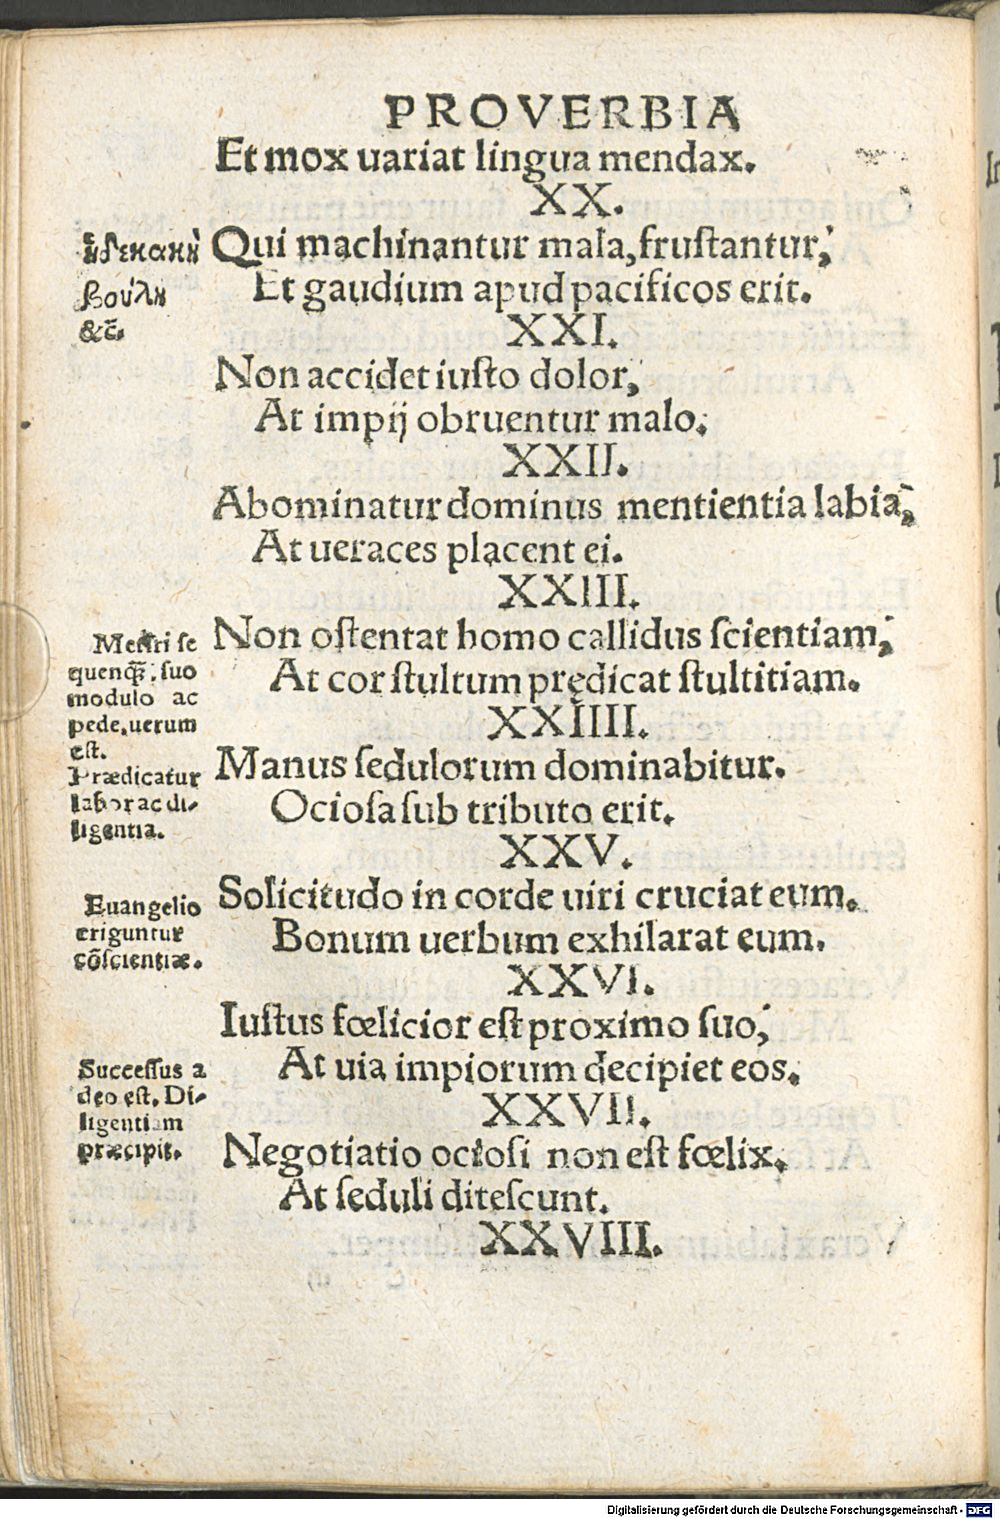 PROVERBIA
Et mox uariat lingua mendax.
XX.
Qui machinantur mala, frustantur;
Et gaudium apud pacificos erit.
XXI.
Non accidet iusto dolor,
At impij obruentur malo.
XXII.
Abominatur dominus mentientia labia;
At ueraces placent ei.
XXIII.
Non ostentat homo callidus scientiam;
At cor stultum prędicat stultitiam.
XXIIII.
Manus sedulorum dominabitur.
Ociosa sub tributo erit.
XXV.
Solicitudo in corde uiri cruciat eum.
Bonum uerbum exhilarat eum.
XXVI.
Iustus fœlicior est proximo suo;
At uia impiorum decipiet eos.
XXVII.
Negotiatio ociosi non est fœlix.
At seduli ditescunt.
XXVIII.
ἡ δὲ κακὴ
βούλη
&c̄.
Metiri se
quenq; suo
modulo ac
pede, uerum
est.
Prædicatur
labor ac di-
ligentia.
Euangelio
eriguntur
cōscientiæ.
Successus a
deo est. Di-
ligentiam
præcipit.
Digitalisierung gefördert durch die Deutsche Forschungsgemeinschaft - DFG